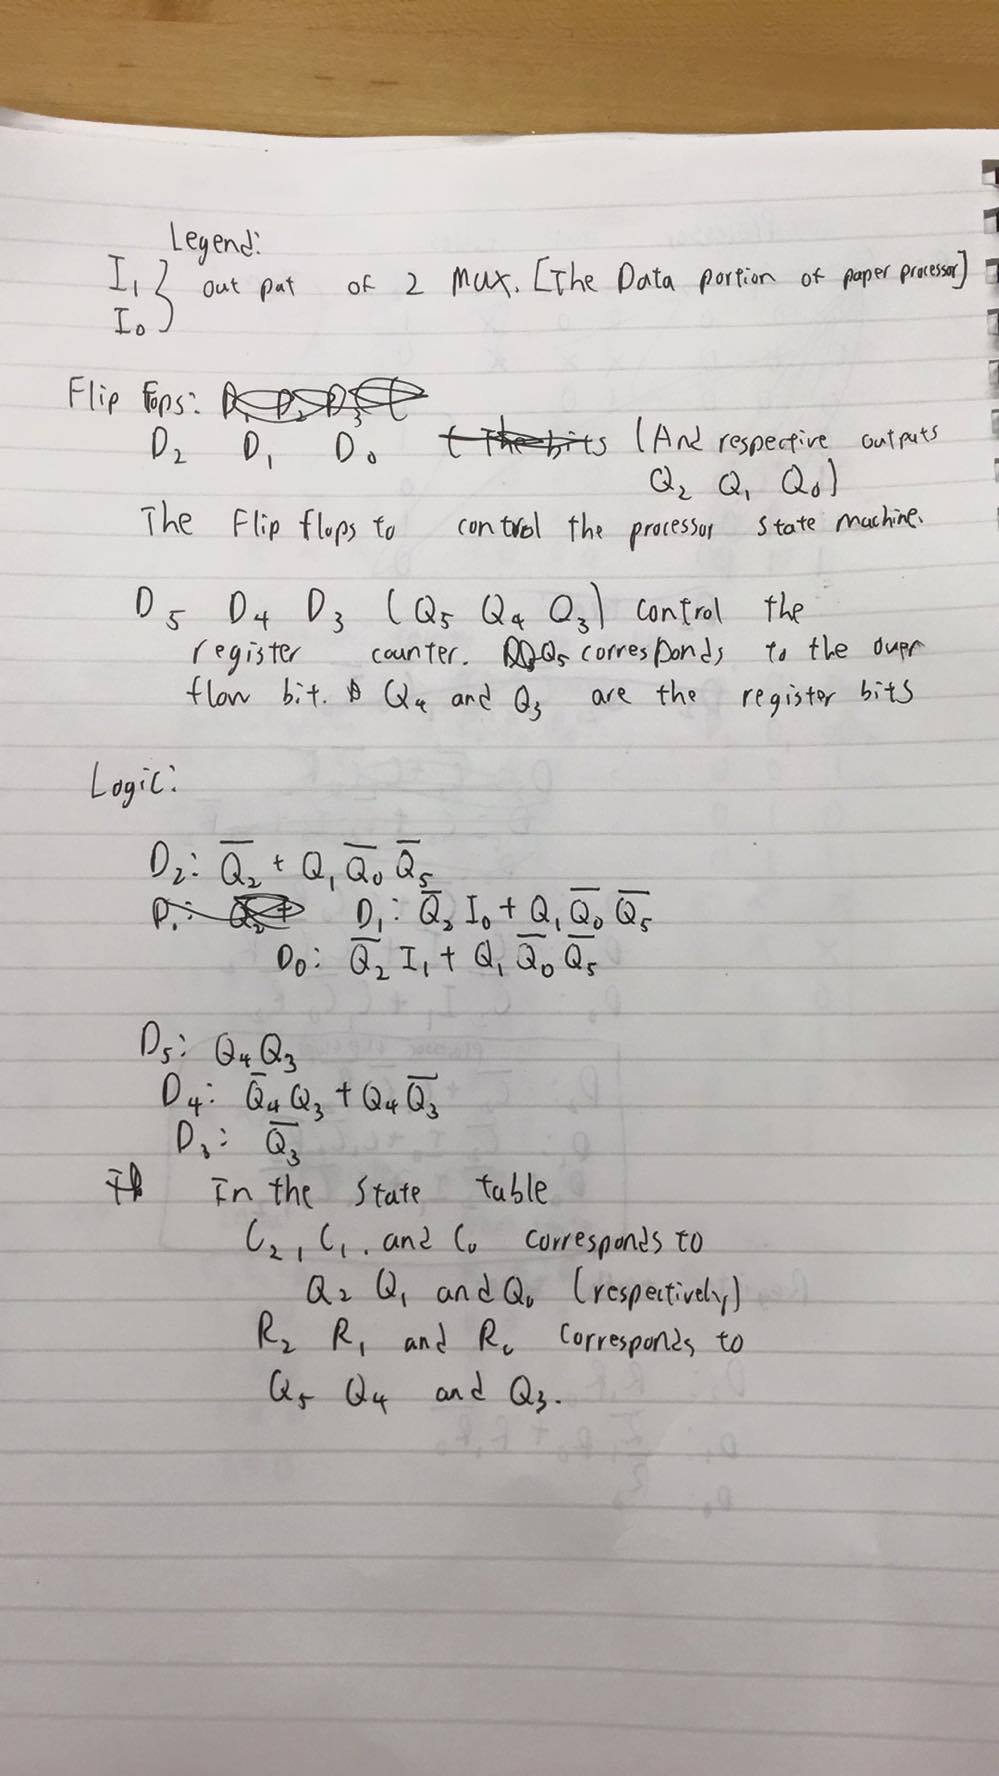 Legend:
I₁ } out put of 2 mux. [The Data portion of paper processor]
I₀
Flip fops:
D₂ D₁ D₀ (And respective outputs
Q₂ Q₁ Q₀)
The Flip flops to control the processor state machine.
D₅ D₄ D₃ (Q₅ Q₄ Q₃) control the
register counter. Q₅ corresponds to the over
flow bit. Q₄ and Q₃ are the register bits
Logic:
D₂: Q̅₂ + Q₁ Q̅₀ Q̅₅
D₁: Q̅₂ I₀ + Q₁ Q̅₀ Q̅₅
D₀: Q̅₂ I₁ + Q₁ Q̅₀ Q̅₅
D₅: Q₄ Q₃
D₄: Q̅₄ Q₃ + Q₄ Q̅₃
D₃: Q̅₃
In the state table
C₂, C₁, and C₀ corresponds to
Q₂ Q₁ and Q₀ (respectively)
R₂ R₁ and R₀ corresponds to
Q₅ Q₄ and Q₃.